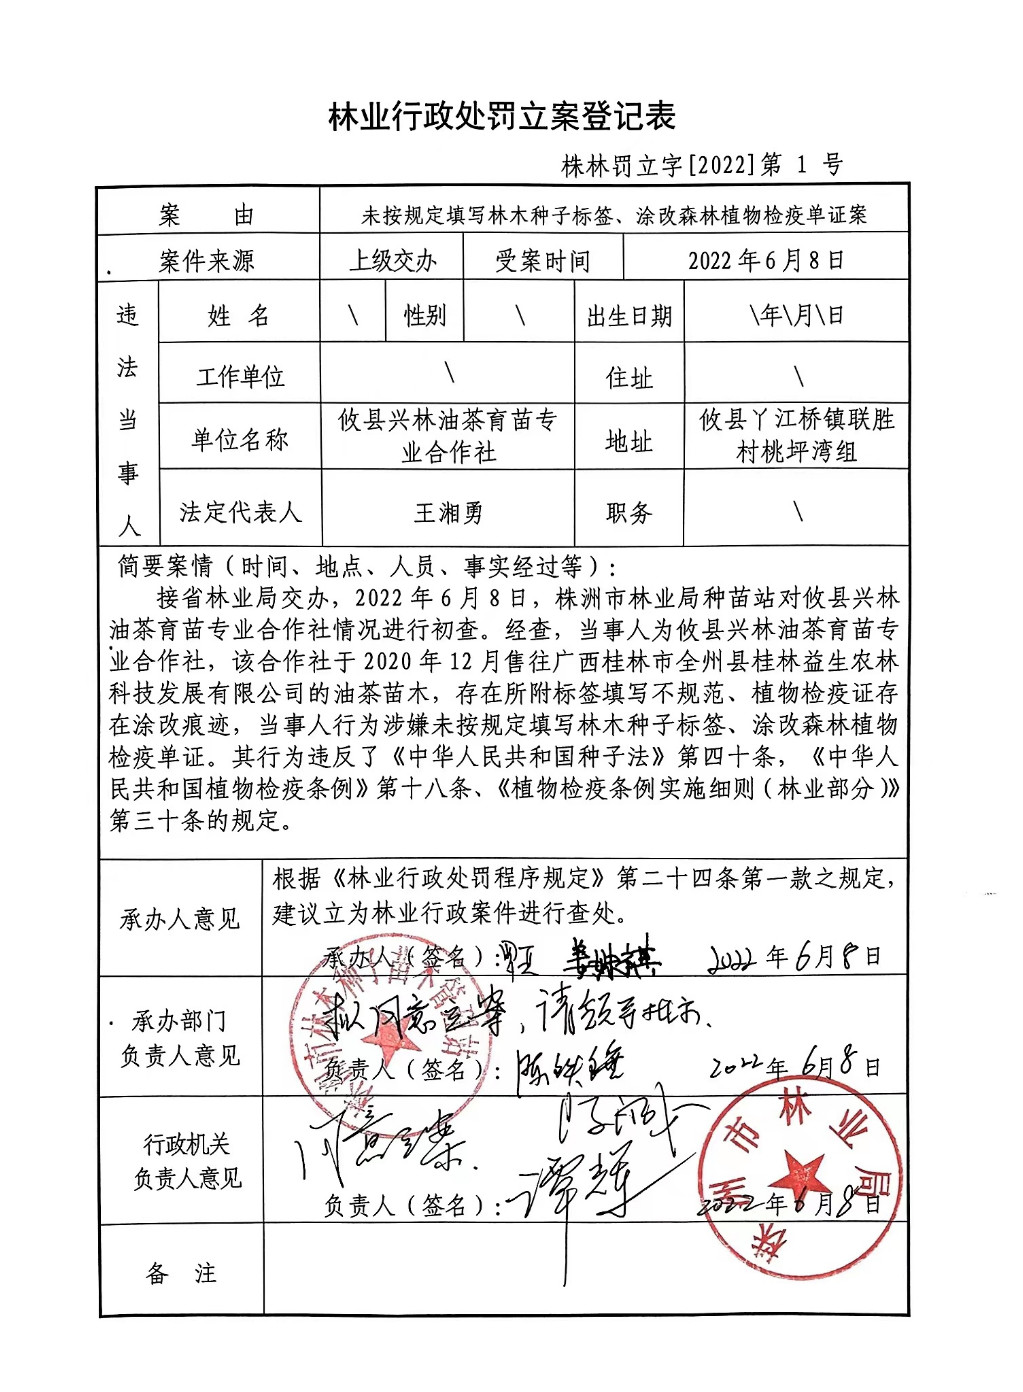 林业行政处罚立案登记表
株林罚立字[2022]第 1 号
案 由 未按规定填写林木种子标签、涂改森林植物检疫单证案
案件来源 上级交办 受案时间 2022年6月8日
违法当事人
姓 名 \ 性别 \ 出生日期 \年\月\日
工作单位 \ 住址 \
单位名称 攸县兴林油茶育苗专
业合作社
地址 攸县丫江桥镇联胜
村桃坪湾组
法定代表人 王湘勇 职务 \
简要案情（时间、地点、人员、事实经过等）：
接省林业局交办，2022年6月8日，株洲市林业局种苗站对攸县兴林
油茶育苗专业合作社情况进行初查。经查，当事人为攸县兴林油茶育苗专
业合作社，该合作社于2020年12月售往广西桂林市全州县桂林益生农林
科技发展有限公司的油茶苗木，存在所附标签填写不规范、植物检疫证存
在涂改痕迹，当事人行为涉嫌未按规定填写林木种子标签、涂改森林植物
检疫单证。其行为违反了《中华人民共和国种子法》第四十条，《中华人
民共和国植物检疫条例》第十八条、《植物检疫条例实施细则（林业部分）》
第三十条的规定。
承办人意见
根据《林业行政处罚程序规定》第二十四条第一款之规定，
建议立为林业行政案件进行查处。
承办人（签名）： 2022年6月8日
承办部门
负责人意见
拟同意立案，请领导批示.
负责人（签名）： 2022年6月8日
株洲市林木种子苗木管理站
行政机关
负责人意见
同意立案.
负责人（签名）：谭辉 2022年6月8日
株洲市林业局
备 注